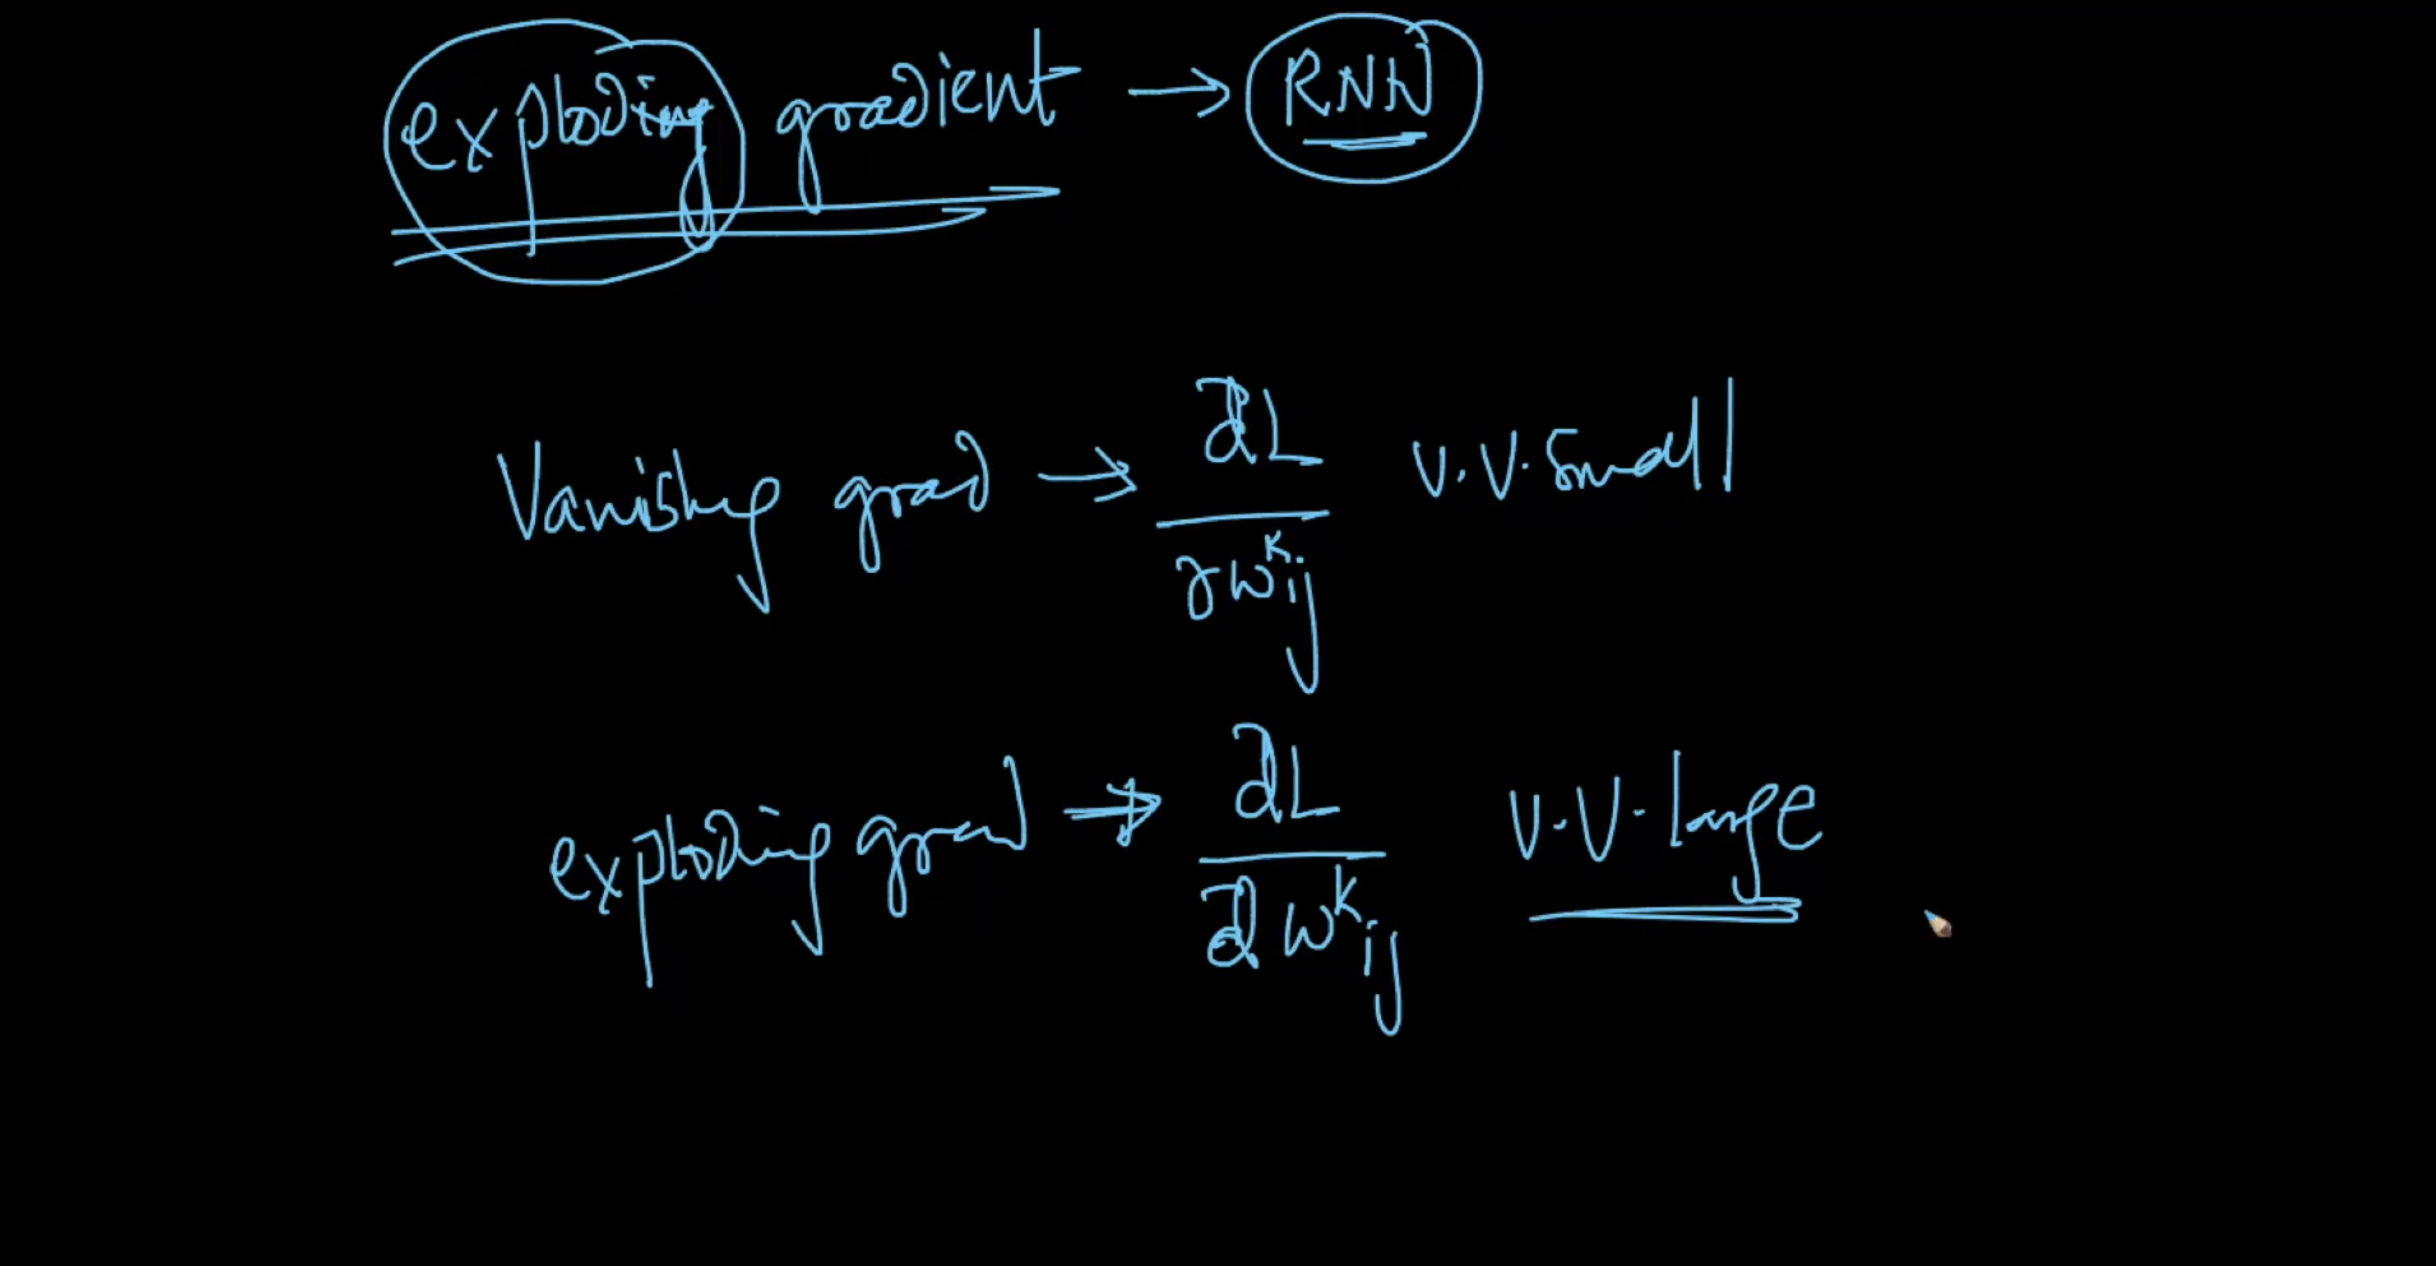 exploding gradient → RNN
Vanishing grad → ∂L / ∂w^k_ij v.v.small
exploding grad → ∂L / ∂w^k_ij v.v.large